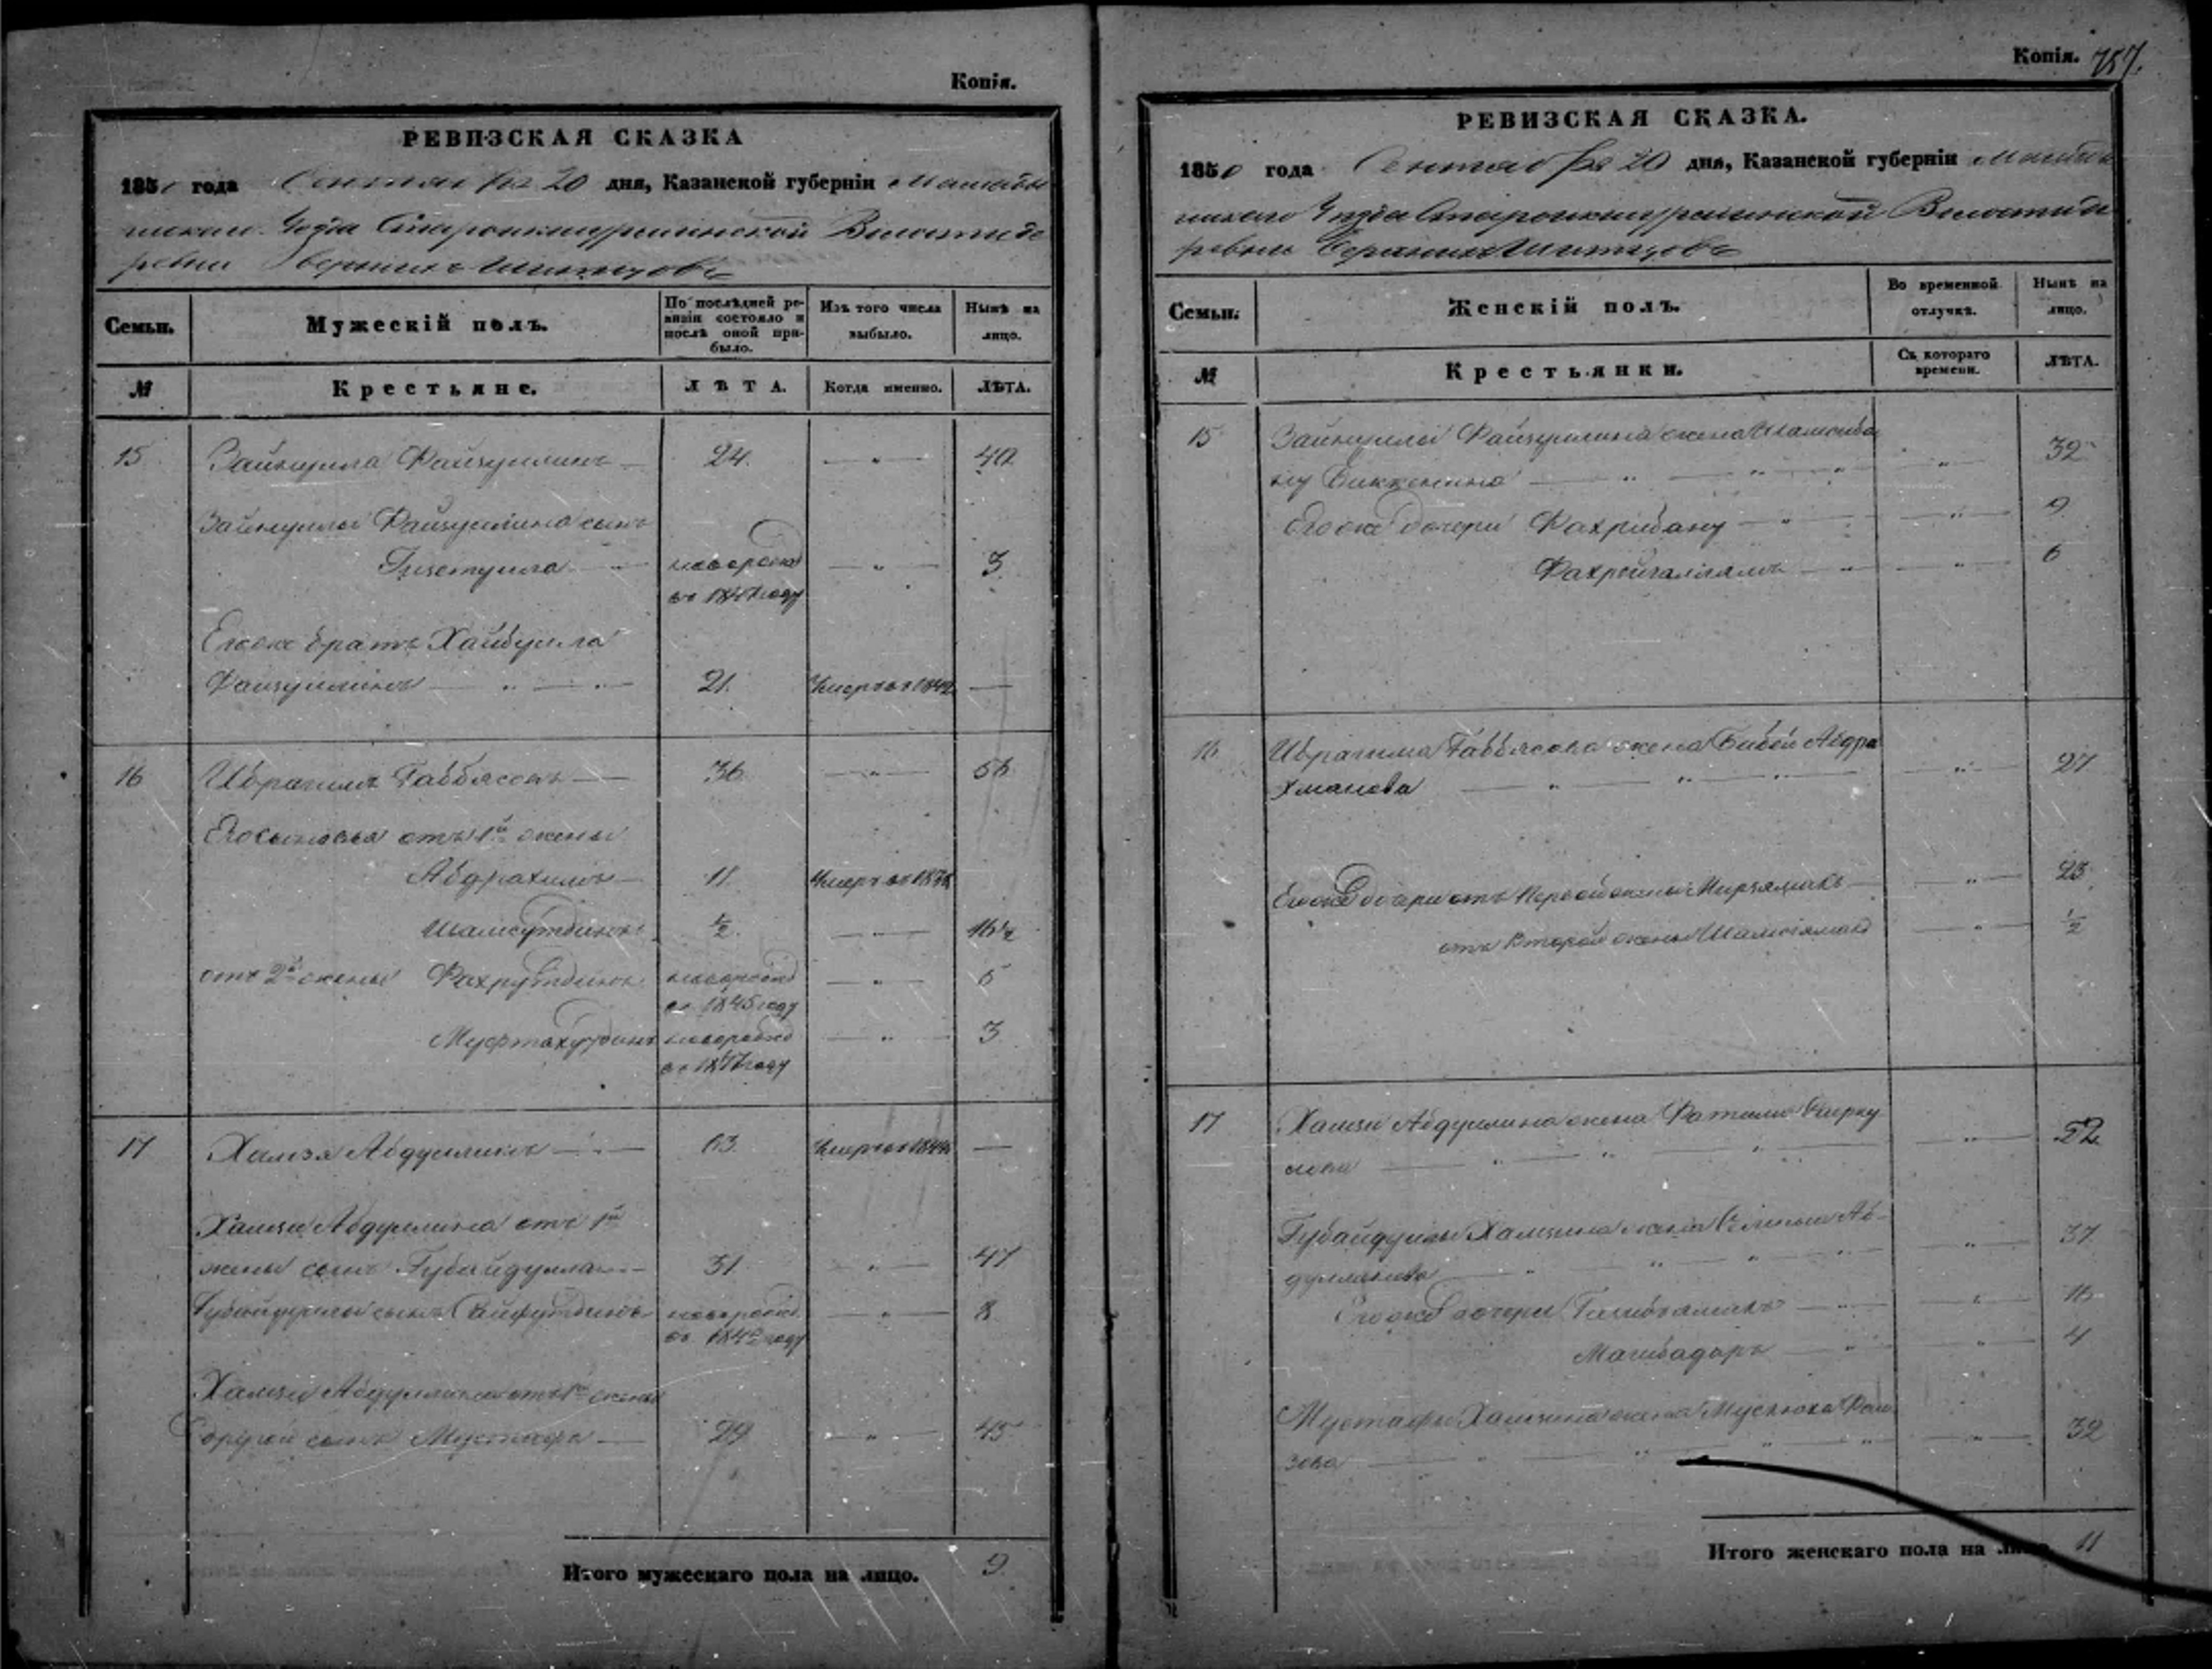 Копія.
РЕВИЗСКАЯ СКАЗКА
1850 года Сентября 20 дня, Казанской губерніи Мамады
шскаго Уѣзда Волости де
ревни Верхнихъ
Семьи.
Мужескій полъ.
По послѣдней ре-
визіи состояло и
послѣ оной при-
было.
Изъ того числа
выбыло.
Нынѣ на
лицо.
№
Крестьяне.
ЛѢТА.
Когда именно.
ЛѢТА.
15 Зайнулла Файзуллинъ 24. 40
Зайнуллы Файзуллина сынъ
новорожд 3.
въ 1847 году
Егоже братъ Хайбулла
Файзуллинъ 21. Умеръ въ 1842
16 Ибрагимъ Габбясовъ 36 56
Его сыновья отъ 1й жены
Абдрахимъ 11. Умеръ въ
Шамсутдинъ ½. 16½
отъ 2й жены Фахрутдинъ новорожд 5
въ 1845 году
Муфтахутдинъ новорожд 3
въ 1847 году
17 Хамзя Абдуллинъ 63. Умеръ въ 1844
Хамзи Абдуллина отъ 1й
жены сынъ Губайдулла 31 47
Губайдуллы сынъ Сайфутдинъ новорожд 8
въ 1842 году
Хамзи Абдуллина отъ 1й жены
другой сынъ Мустафа 29 45
Итого мужескаго пола на лицо. 9
Копія. 757.
РЕВИЗСКАЯ СКАЗКА.
1850 года Сентября 20 дня, Казанской губерніи Мамады
шскаго Уѣзда Волости де
ревни Верхнихъ
Семьи.
Женскій полъ.
Во временной
отлучкѣ.
Нынѣ на
лицо.
№
Крестьянки.
Съ котораго
времени.
ЛѢТА.
15 Зайнуллы Файзуллина жена Шамсиба
ну Биккенина 32
Егоже дочери Фахрибану 9
6
16 Ибрагима Габбясова жена Бибей Абдра
хманова 27
Егоже дочери отъ первой жены 23
отъ второй жены ½
17 Хамзи Абдуллина жена Фатима
52
Губайдуллы Хамзина жена Аб-
37
Егоже дочери
Магибадаръ 4
Мустафы Хамзина жена Фаи
зова 32
Итого женскаго пола на лицо. 11